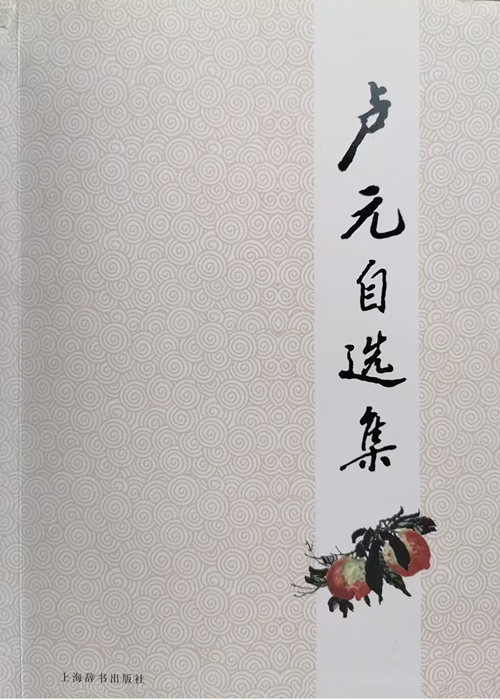 卢元自选集
上海辞书出版社